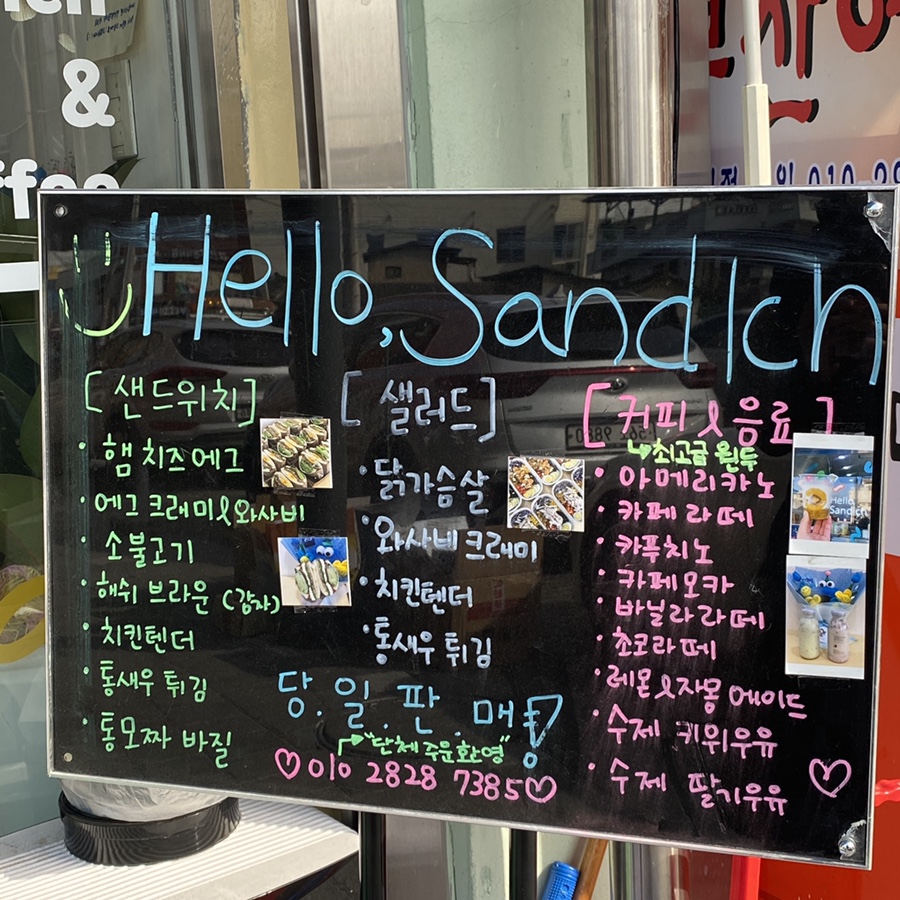 &
Hello, SandIch
[샌드위치]
· 햄 치즈 에그
· 에그 크래미&와사비
· 소불고기
· 해쉬 브라운 (감자)
· 치킨텐더
· 통새우 튀김
· 통모짜 바질
[샐러드]
· 닭가슴살
· 와사비 크래미
· 치킨텐더
· 통새우 튀김
[커피&음료]
↳최고급 원두
· 아메리카노
· 카페 라떼
· 카푸치노
· 카페모카
· 바닐라라떼
· 초코라떼
· 레몬&자몽 에이드
· 수제 키위우유
· 수제 딸기우유
당.일.판.매!
"단체 주문환영"
♡010 2828 7385♡
Hello
Sandich